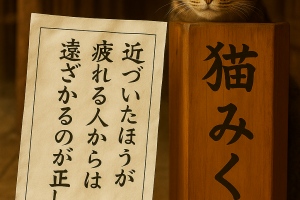 近づいたほうが
疲れる人からは
遠ざかるのが正し
猫みく